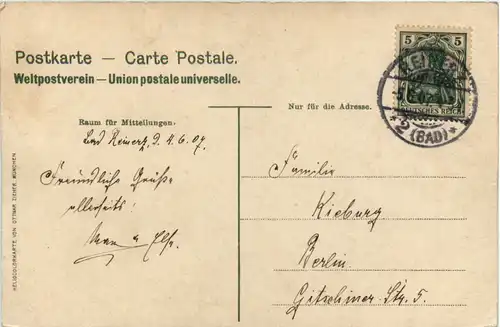 Postkarte — Carte Postale.
Weltpostverein — Union postale universelle.
Raum für Mitteilungen.
Bad Reinerz, d. 4.6.07.
Freundliche Grüße
allerseits!
Elfe.
HELIOCOLORKARTE VON OTTMAR ZIEHER, MÜNCHEN
5 5
DEUTSCHES REICH
REINERZ
*2 (BAD) *
Nur für die Adresse.
Familie
Kieburg
Berlin
Gitschiner-Str. 5.